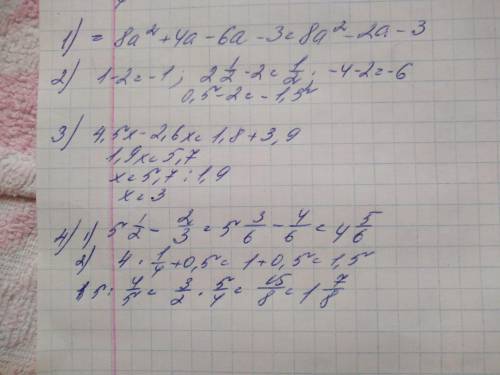 1) = 8a² + 4a - 6a - 3 = 8a² - 2a - 3
2) 1-2=-1; 2 1/2 - 2 = 1/2; -4-2=-6
0,5-2=-1,5
3) 4,5x - 2,6x = 1,8 + 3,9
1,9x = 5,7
x = 5,7 : 1,9
x = 3
4) 1) 5 1/2 - 2/3 = 5 3/6 - 4/6 = 4 5/6
2) 4 · 1/4 + 0,5 = 1 + 0,5 = 1,5
1,5 : 4/5 = 3/2 · 5/4 = 15/8 = 1 7/8